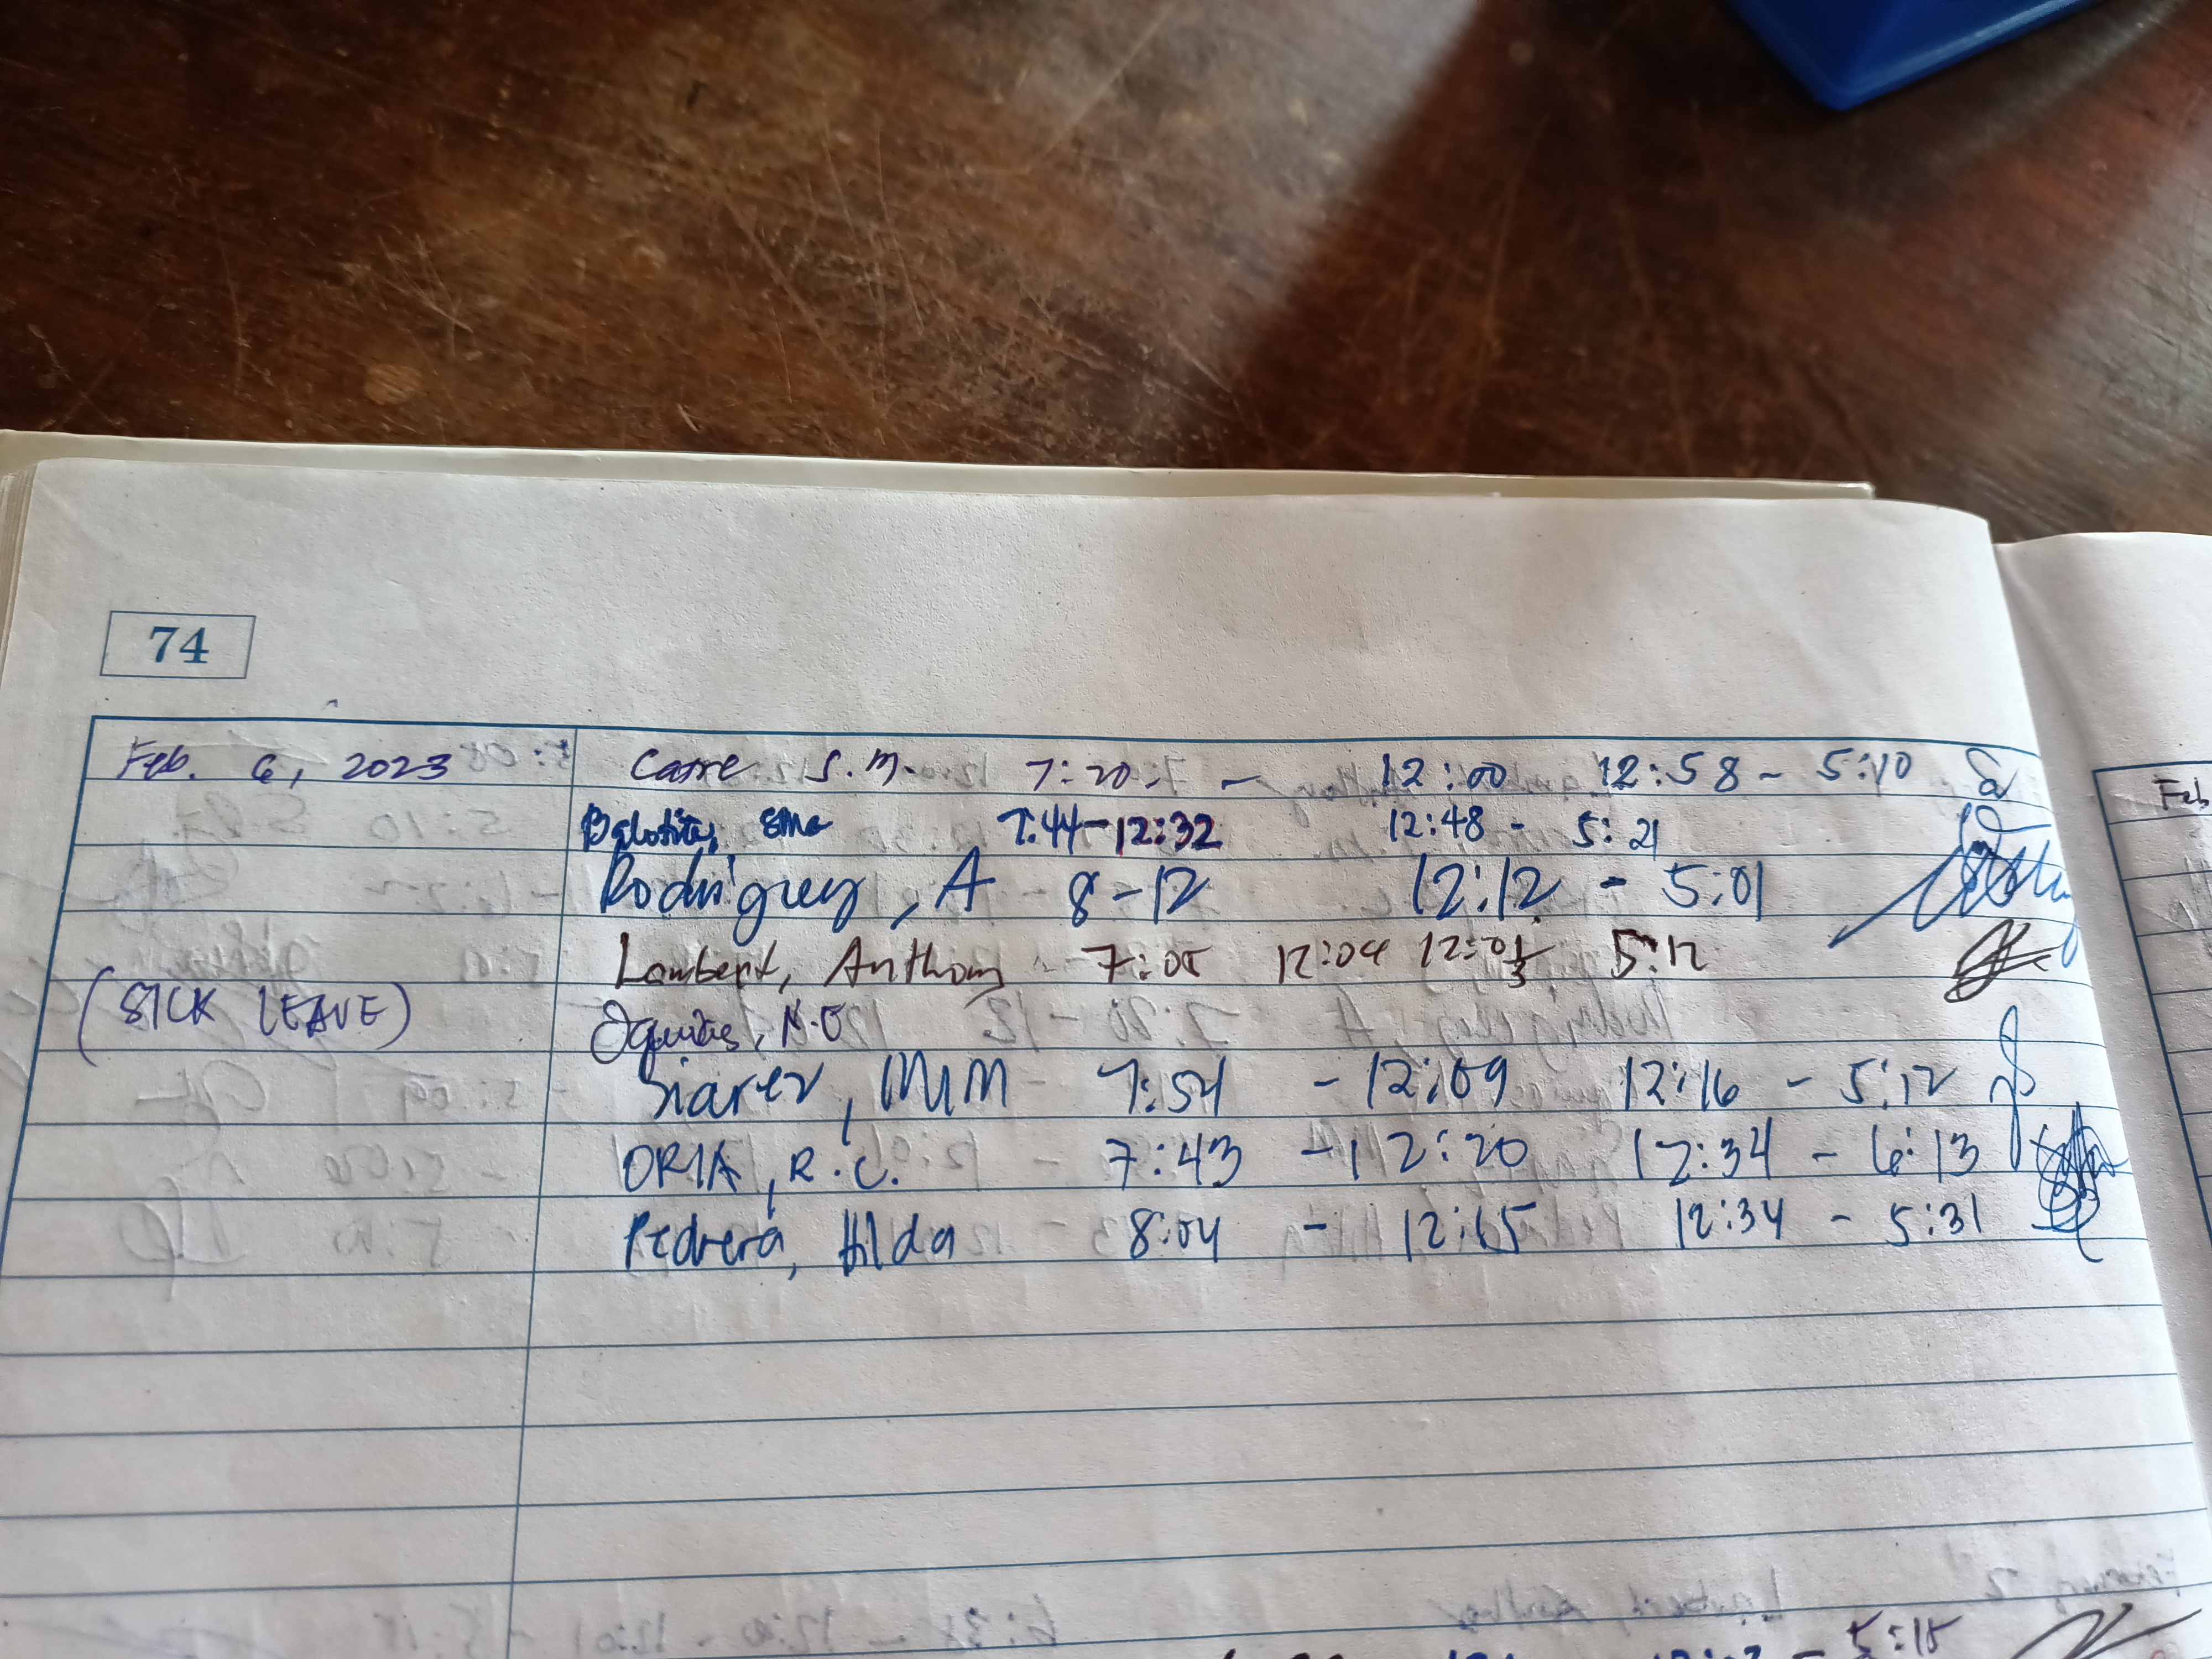 74
Feb. 6, 2023 Carre S.M. 7:20 - 12:00 12:58 - 5:10
7:44-12:32 12:48 - 5:21
Rodriguez, A 8-12 12:12 - 5:01
Lambert, Anthony 7:05 12:04 5:12
(SICK LEAVE) N.O
Siarez, MM 7:54 - 12:09 12:16 - 5:12
ORIA, R.C. 7:43 - 12:20 12:34 - 6:13
Pedrera, Hilda 8:04 - 12:15 12:34 - 5:31
Feb
5:15